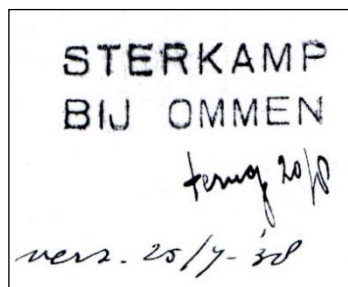 STERKAMP
BIJ OMMEN
terug 20/8
verz. 25/7-'38